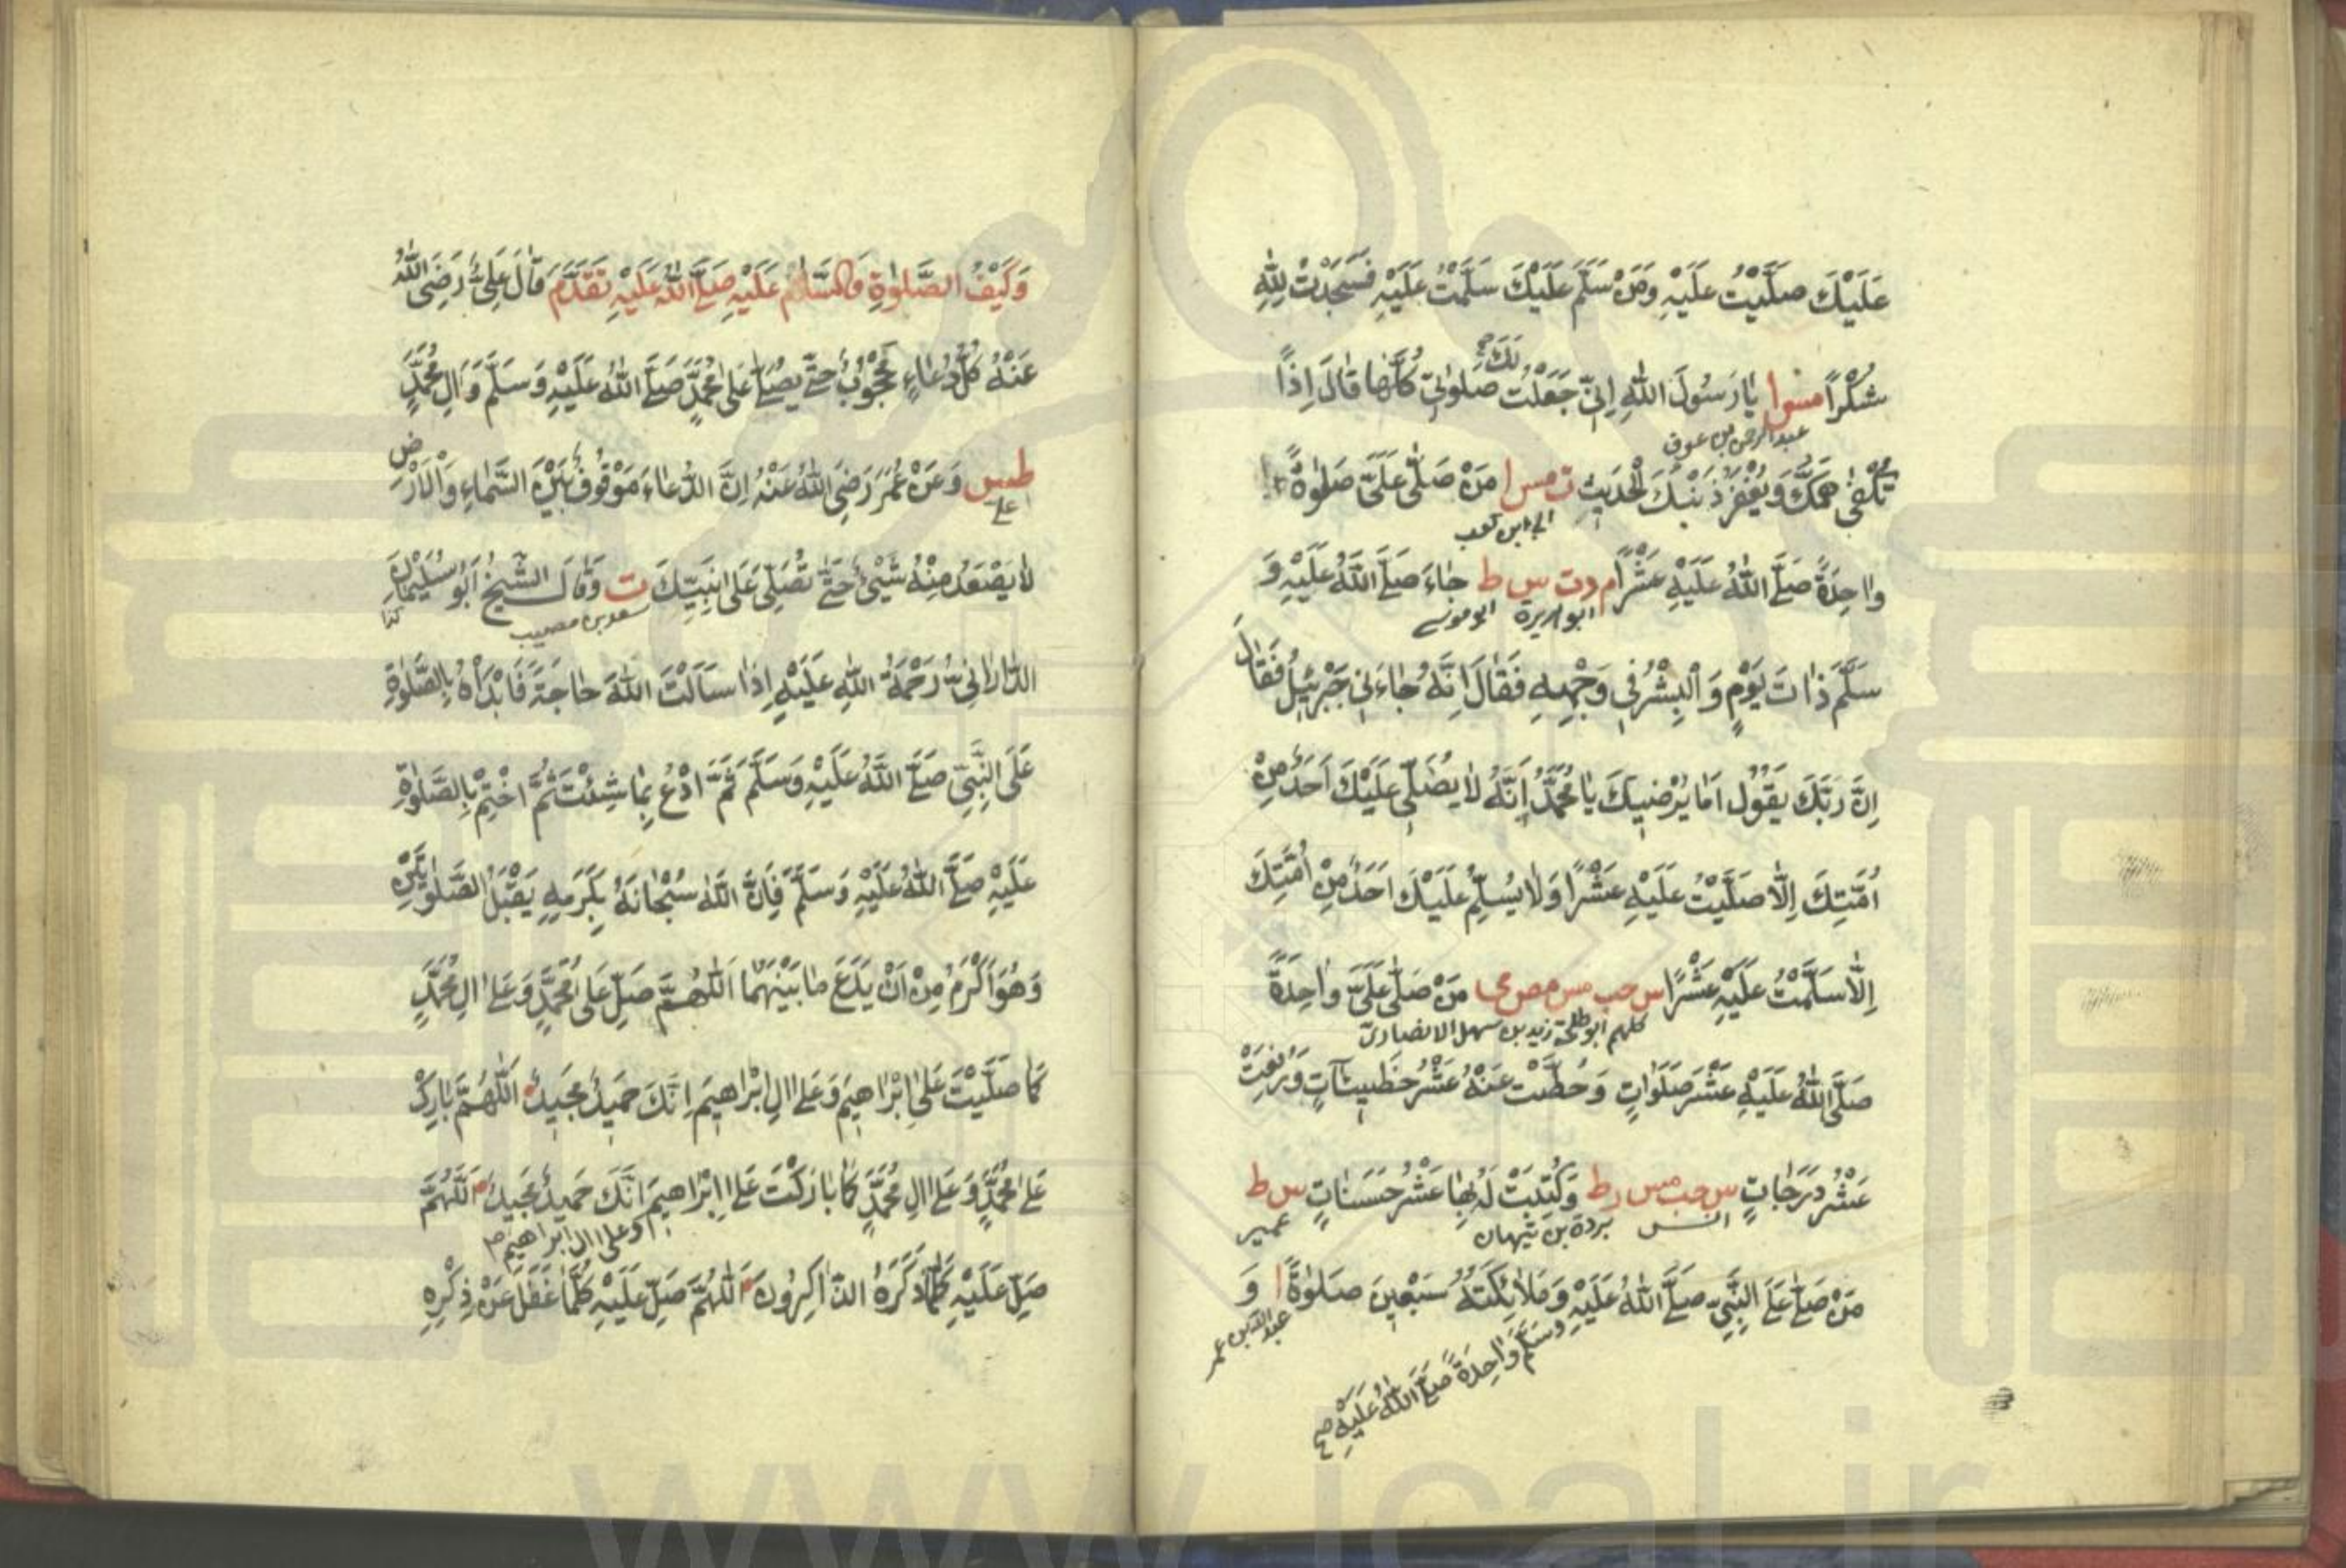 عَلَيْكَ صَلَّيْتُ عَلَيْهِ وَمَنْ سَلَّمَ عَلَيْكَ سَلَّمْتُ عَلَيْهِ فَسَجَدْتُ لِلّٰهِ
لَكَ
شُكْرًا مس ا يَا رَسُولَ اللّٰهِ اِنِّي جَعَلْتُ صَلٰوتِي كُلَّهَا قَالَ اِذًا
عبد الرحمن بن عوف
تُكْفٰى هَمَّكَ وَيُغْفَرُ ذَنْبُكَ الْحَدِيثَ ت مس ا مَنْ صَلّٰى عَلَيَّ صَلٰوةً
ابى ابن كعب
وَاحِدَةً صَلَّى اللّٰهُ عَلَيْهِ عَشْرًا م د ت س ط جَاءَ صَلَّى اللّٰهُ عَلَيْهِ وَ
ابو هريرة ابو موسى
سَلَّمَ ذَاتَ يَوْمٍ وَالْبِشْرُ فِي وَجْهِهِ فَقَالَ اِنَّهُ جَاءَنِي جَبْرَئِيلُ فَقَالَ
اِنَّ رَبَّكَ يَقُولُ اَمَا يُرْضِيكَ يَا مُحَمَّدُ اَنَّهُ لَا يُصَلِّي عَلَيْكَ اَحَدٌ مِنْ
اُمَّتِكَ اِلَّا صَلَّيْتُ عَلَيْهِ عَشْرًا وَلَا يُسَلِّمُ عَلَيْكَ اَحَدٌ مِنْ اُمَّتِكَ
اِلَّا سَلَّمْتُ عَلَيْهِ عَشْرًا س حب مس مص مى مَنْ صَلّٰى عَلَيَّ وَاحِدَةً
كلهم ابو طلحة زيد بن سهل الانصارى
صَلَّى اللّٰهُ عَلَيْهِ عَشْرَ صَلَوَاتٍ وَحُطَّتْ عَنْهُ عَشْرُ خَطِيئَاتٍ وَرُفِعَتْ
عَشْرُ دَرَجَاتٍ س حب مس ر ط وَكُتِبَتْ لَهُ بِهَا عَشْرُ حَسَنَاتٍ س ط
انس بردة بن نيهان عمير
مَنْ صَلّٰى عَلَى النَّبِيِّ صَلَّى اللّٰهُ عَلَيْهِ وَمَلَائِكَتُهُ سَبْعِينَ صَلٰوةً ا وَ
وَسَلَّمَ وَاحِدَةً صَلَّى اللّٰهُ عَلَيْهِ صح
عبد الله بن عمر
وَكَيْفُ الصَّلٰوةِ وَالسَّلَامِ عَلَيْهِ صَلَّى اللّٰهُ عَلَيْهِ تَقَدَّمَ قَالَ عَلِيٌّ رَضِيَ اللّٰهُ
عَنْهُ كُلُّ دُعَاءٍ مَحْجُوبٌ حَتّٰى يُصَلّٰى عَلٰى مُحَمَّدٍ صَلَّى اللّٰهُ عَلَيْهِ وَسَلَّمَ وَاٰلِ مُحَمَّدٍ
طس وَعَنْ عُمَرَ رَضِيَ اللّٰهُ عَنْهُ اِنَّ الدُّعَاءَ مَوْقُوفٌ بَيْنَ السَّمَاءِ وَالْاَرْضِ
على
لَا يَصْعَدُ مِنْهُ شَيْئٌ حَتّٰى تُصَلِّيَ عَلَى نَبِيِّكَ ت وَقَالَ الشَّيْخُ اَبُو سُلَيْمَانَ
سعد بن مصيب
الدَّارَانِيُّ رَحْمَةُ اللّٰهِ عَلَيْهِ اِذَا سَاَلْتَ اللّٰهَ حَاجَةً فَابْدَاْهُ بِالصَّلٰوةِ
عَلَى النَّبِيِّ صَلَّى اللّٰهُ عَلَيْهِ وَسَلَّمَ ثُمَّ ادْعُ بِمَا شِئْتَ ثُمَّ اخْتِمْ بِالصَّلٰوةِ
عَلَيْهِ صَلَّى اللّٰهُ عَلَيْهِ وَسَلَّمَ فَاِنَّ اللّٰهَ سُبْحَانَهُ بِكَرَمِهِ يَقْبَلُ الصَّلٰوتَيْنِ
وَهُوَ اَكْرَمُ مِنْ اَنْ يَدَعَ مَا بَيْنَهُمَا اَللّٰهُمَّ صَلِّ عَلٰى مُحَمَّدٍ وَعَلٰى اٰلِ مُحَمَّدٍ
كَمَا صَلَّيْتَ عَلٰى اِبْرَاهِيمَ وَعَلٰى اٰلِ اِبْرَاهِيمَ اِنَّكَ حَمِيدٌ مَجِيدٌ اَللّٰهُمَّ بَارِكْ
عَلٰى مُحَمَّدٍ وَعَلٰى اٰلِ مُحَمَّدٍ كَمَا بَارَكْتَ عَلٰى اِبْرَاهِيمَ اِنَّكَ حَمِيدٌ مَجِيدٌ اَللّٰهُمَّ
وعلى ال ابراهيم
صَلِّ عَلَيْهِ كُلَّمَا ذَكَرَهُ الذَّاكِرُونَ اَللّٰهُمَّ صَلِّ عَلَيْهِ كُلَّمَا غَفَلَ عَنْ ذِكْرِهِ
www.ical.ir